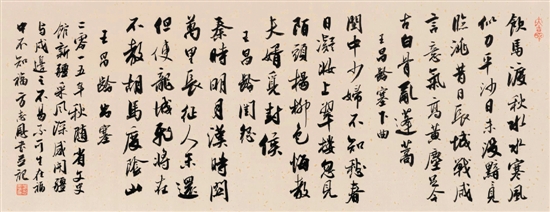 飲馬渡秋水水寒風
似刀平沙日未没黯見
臨洮昔日長城戰咸
言意氣高黄塵足今
古白骨亂蓬蒿
王昌齡塞下曲
閨中少婦不知愁春
日凝妝上翠樓忽見
陌頭楊柳色悔教
夫婿覓封侯
王昌齡閨怨
秦時明月漢時關
萬里長征人未還
但使龍城飛將在
不教胡馬度陰山
王昌齡 出塞
二零一五年秋隨省文史
館新疆采風深感開疆
與戍邊之不易不可生在福
中不知福 方志恩并記